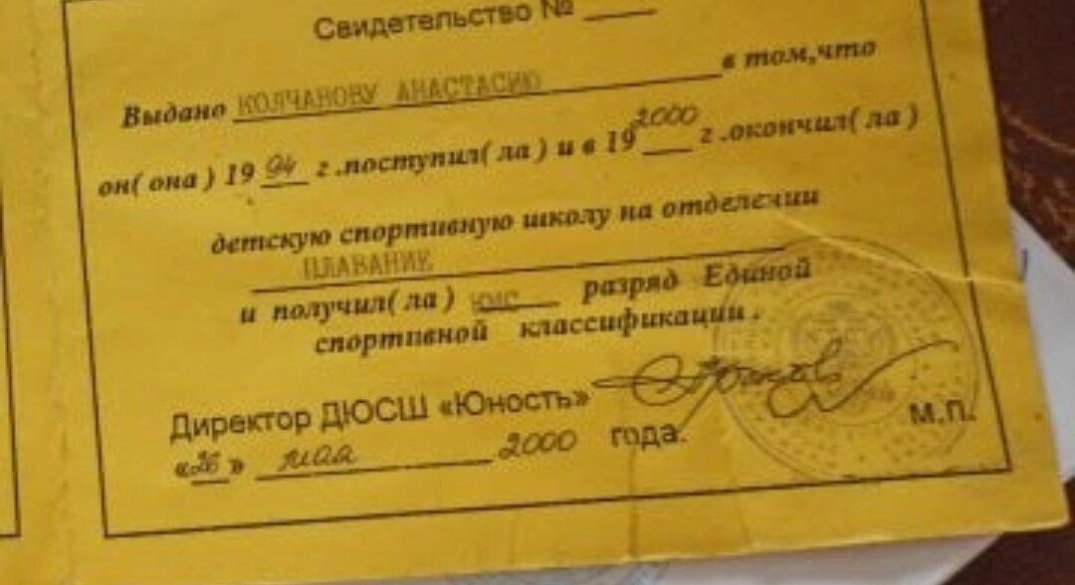 Свидетельство № ____
Выдано КОЛЧАНОВУ АНАСТАСИЮ в том,что
он( она ) 19 94 г .поступил( ла ) и в 19 2000 г .окончил( ла )
детскую спортивную школу на отделении
ПЛАВАНИЕ
и получил( ла ) КМС разряд Единой
спортивной классификации .
Директор ДЮСШ «Юность»
М.П.
«26» мая 2000 года.